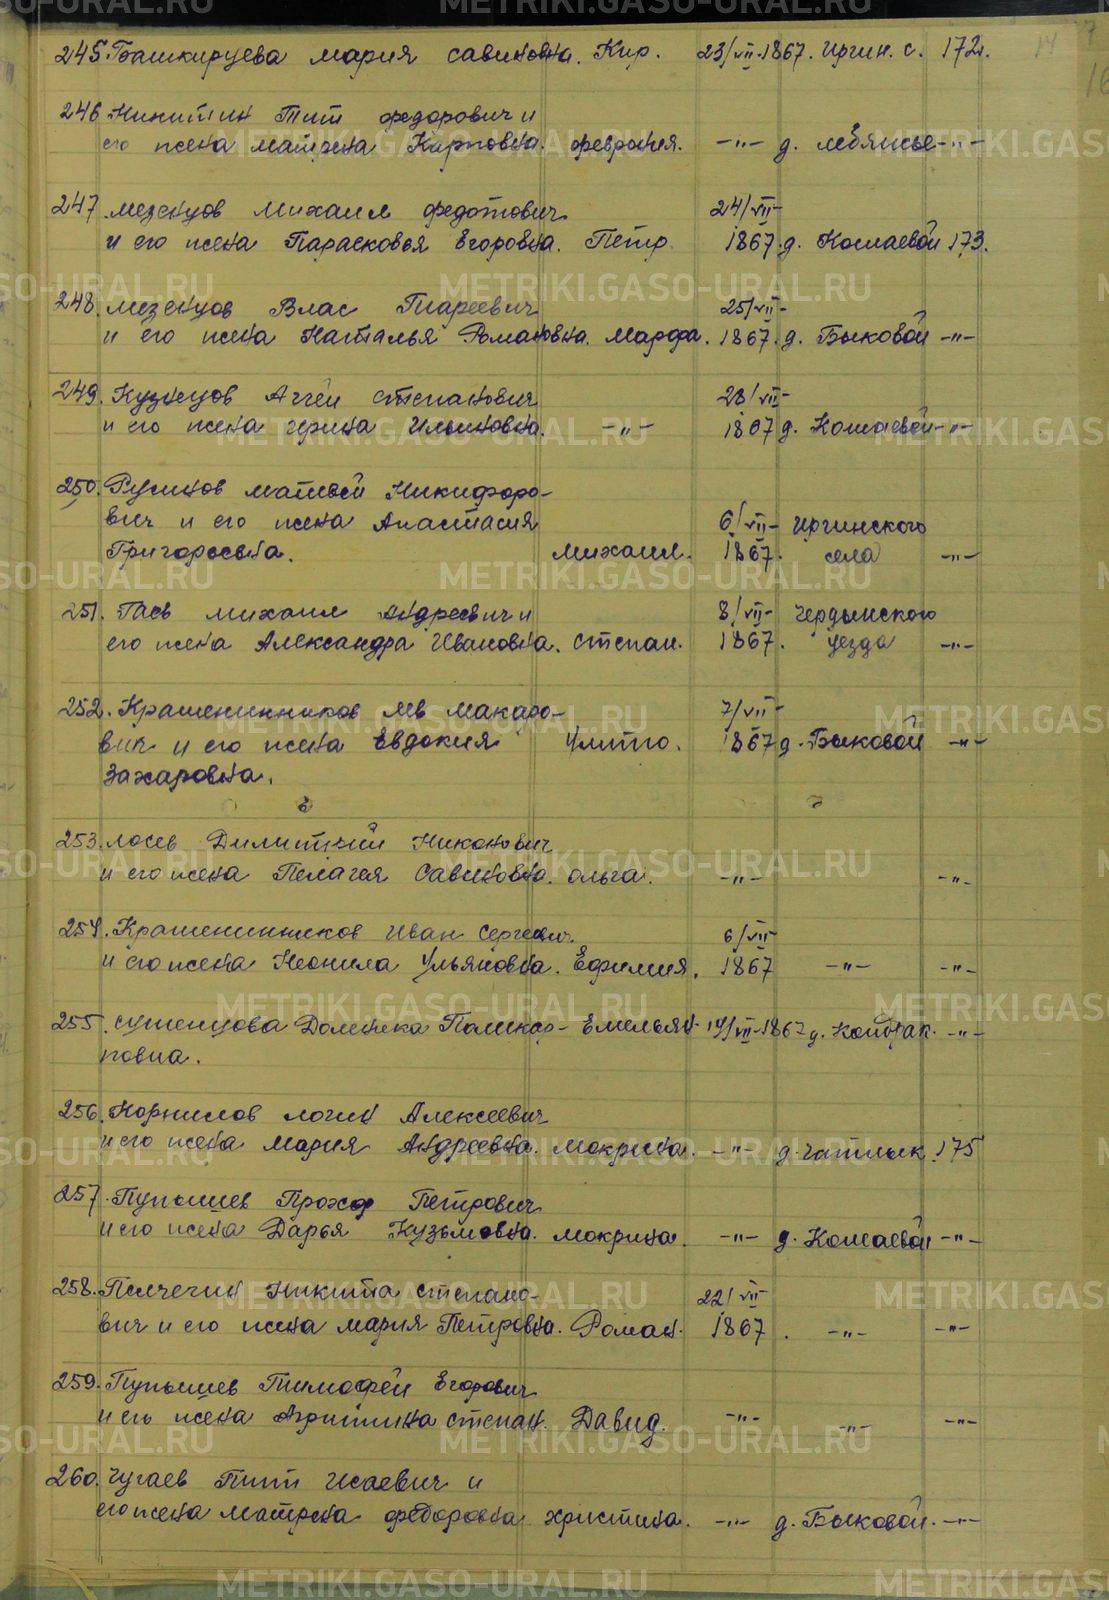 245 Башкирцева Мария Савиновна. Кир. 23/VII-1867. Иргин. с. 172.
246 Никитин Тит Федорович и
его жена Матрена Карповна. Феврония. -"- д. Лебяжье -"-
247 Мезенцов Михаил Федотович 24/VII-
и его жена Парасковья Егоровна. Петр 1867. д. Кошаевой 173.
248. Мезенцов Влас 25/VII-
и его жена Наталья Романовна. Марфа. 1867. д. Быковой -"-
249. Кузнецов Аггей Степанович 28/VII-
и его жена Ирина Ильиновна. -"- 1867 д. Кошаевой -"-
250. Русинов Матвей Никифоро-
вич и его жена Анастасия 6/VII- Иргинского
Григорьевна. Михаил. 1867. села -"-
251. Гаев Михаил Андреевич и 8/VII- Чердынского
его жена Александра Ивановна. Степан. 1867. уезда -"-
252. Крашенинников Лев Макаро- 7/VII-
вич и его жена Евдокия Улита. 1867 д. Быковой -"-
Захаровна.
253. Лосев Димитрий Никонович
и его жена Пелагея Савиновна. Ольга. -"- -"-
254. Крашенинников Иван Сергеевич. 6/VII
и его жена Неонила Ульяновна. Ефимия. 1867 -"- -"-
255. Сушенцова Домника Поликар- Емельян 14/VII-1867 д. -"-
повна.
256. Корнилов Логин Алексеевич
и его жена Мария Андреевна. Мокрина. -"- д. Чатлык 175
257. Пупышев Прохор Петрович
и его жена Дарья Кузьмовна. Мокрина. -"- д. Кошаевой -"-
258. Никита Степано- 22/VII
вич и его жена Мария Петровна. Роман. 1867. -"- -"-
259. Пупышев Тимофей Егорович
и его жена Агрипина Степан. Давид. -"- -"- -"-
260. Чугаев Тит Исаевич и
его жена Матрена Федоровна Христина. -"- д. Быковой. -"-